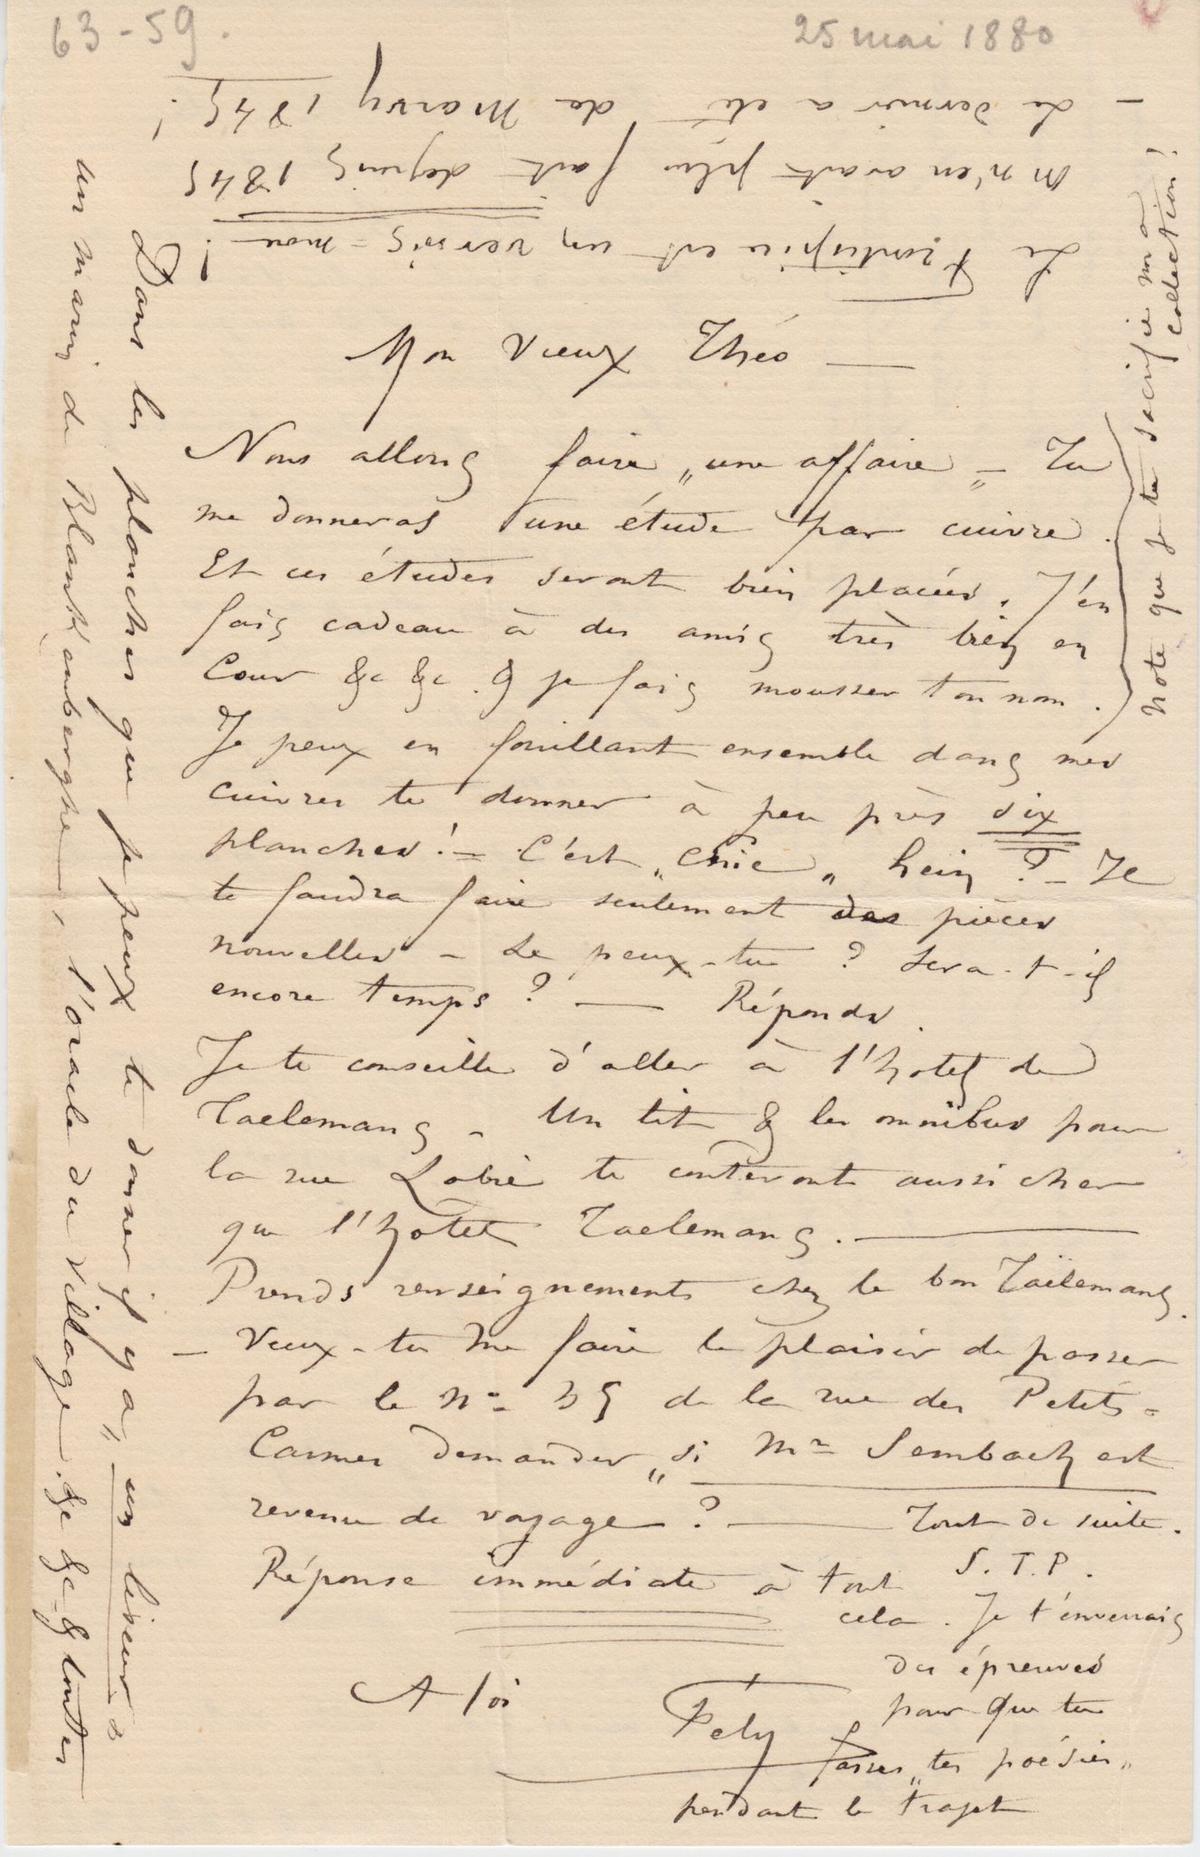 63-59.
25 mai 1880
Mon vieux Théo —
Nous allons faire „une affaire„ – Tu
me donneras une étude par cuivre.
Et ces études seront bien placées. J'en
fais cadeau à des amis très bien en
Cour &c &c. & je fais mousser ton nom.
Je peux en fouillant ensemble dans mes
cuivres te donner à peu près six
planches! – C'est „chic„ hein? – Il
te faudra faire seulement des pièces
nouvelles – Le peux-tu? Sera-t-il
encore temps? — Réponds.
Je te conseille d'aller à l'hotel de
Taelemans – Un lit & les omnibus pour
la rue te couteront aussi cher
que l'hotel Taelemans. —
Prends renseignements chez le bon Taëlemans.
— Veux-tu me faire le plaisir de passer
par le No 35 de la rue des Petits-
Carmes demander „si Mr Sembach est
revenu de voyage? — Tout de suite.
S.T.P.
Réponse immédiate à tout
cela. Je t'enverrais
des épreuves
pour que tu
fasses „tes poésies„
pendant le trajet
A toi
Fély
Note que je te sacrifie ma
collection!
Le Frontispice est un vernis-mou!
On n'en avait plus fait depuis 1845
– Le dernier a eté de Marvy 1845!
Dans les planches que je peux te donner il y a, „un liseur„ &
un marin de Blankenberghe, l'oracle du village. &c &c & toutes